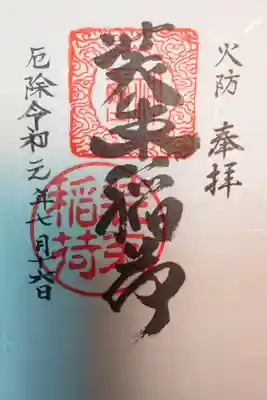 火防 奉拝
装束稲荷
厄除 令和元年七月十六日